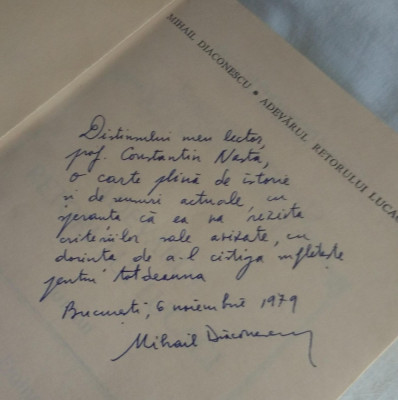 MIHAIL DIACONESCU • ADEVĂRUL RETORULUI LUCA
Distinsului meu lector,
prof. Constantin Nasta,
o carte plină de istorie
și de sensuri actuale, cu
speranța că ea va rezista
criteriilor sale avizate, cu
dorința de a-l cîștiga sufletește
pentru totdeauna
București, 6 noiembrie 1979
Mihail Diaconescu